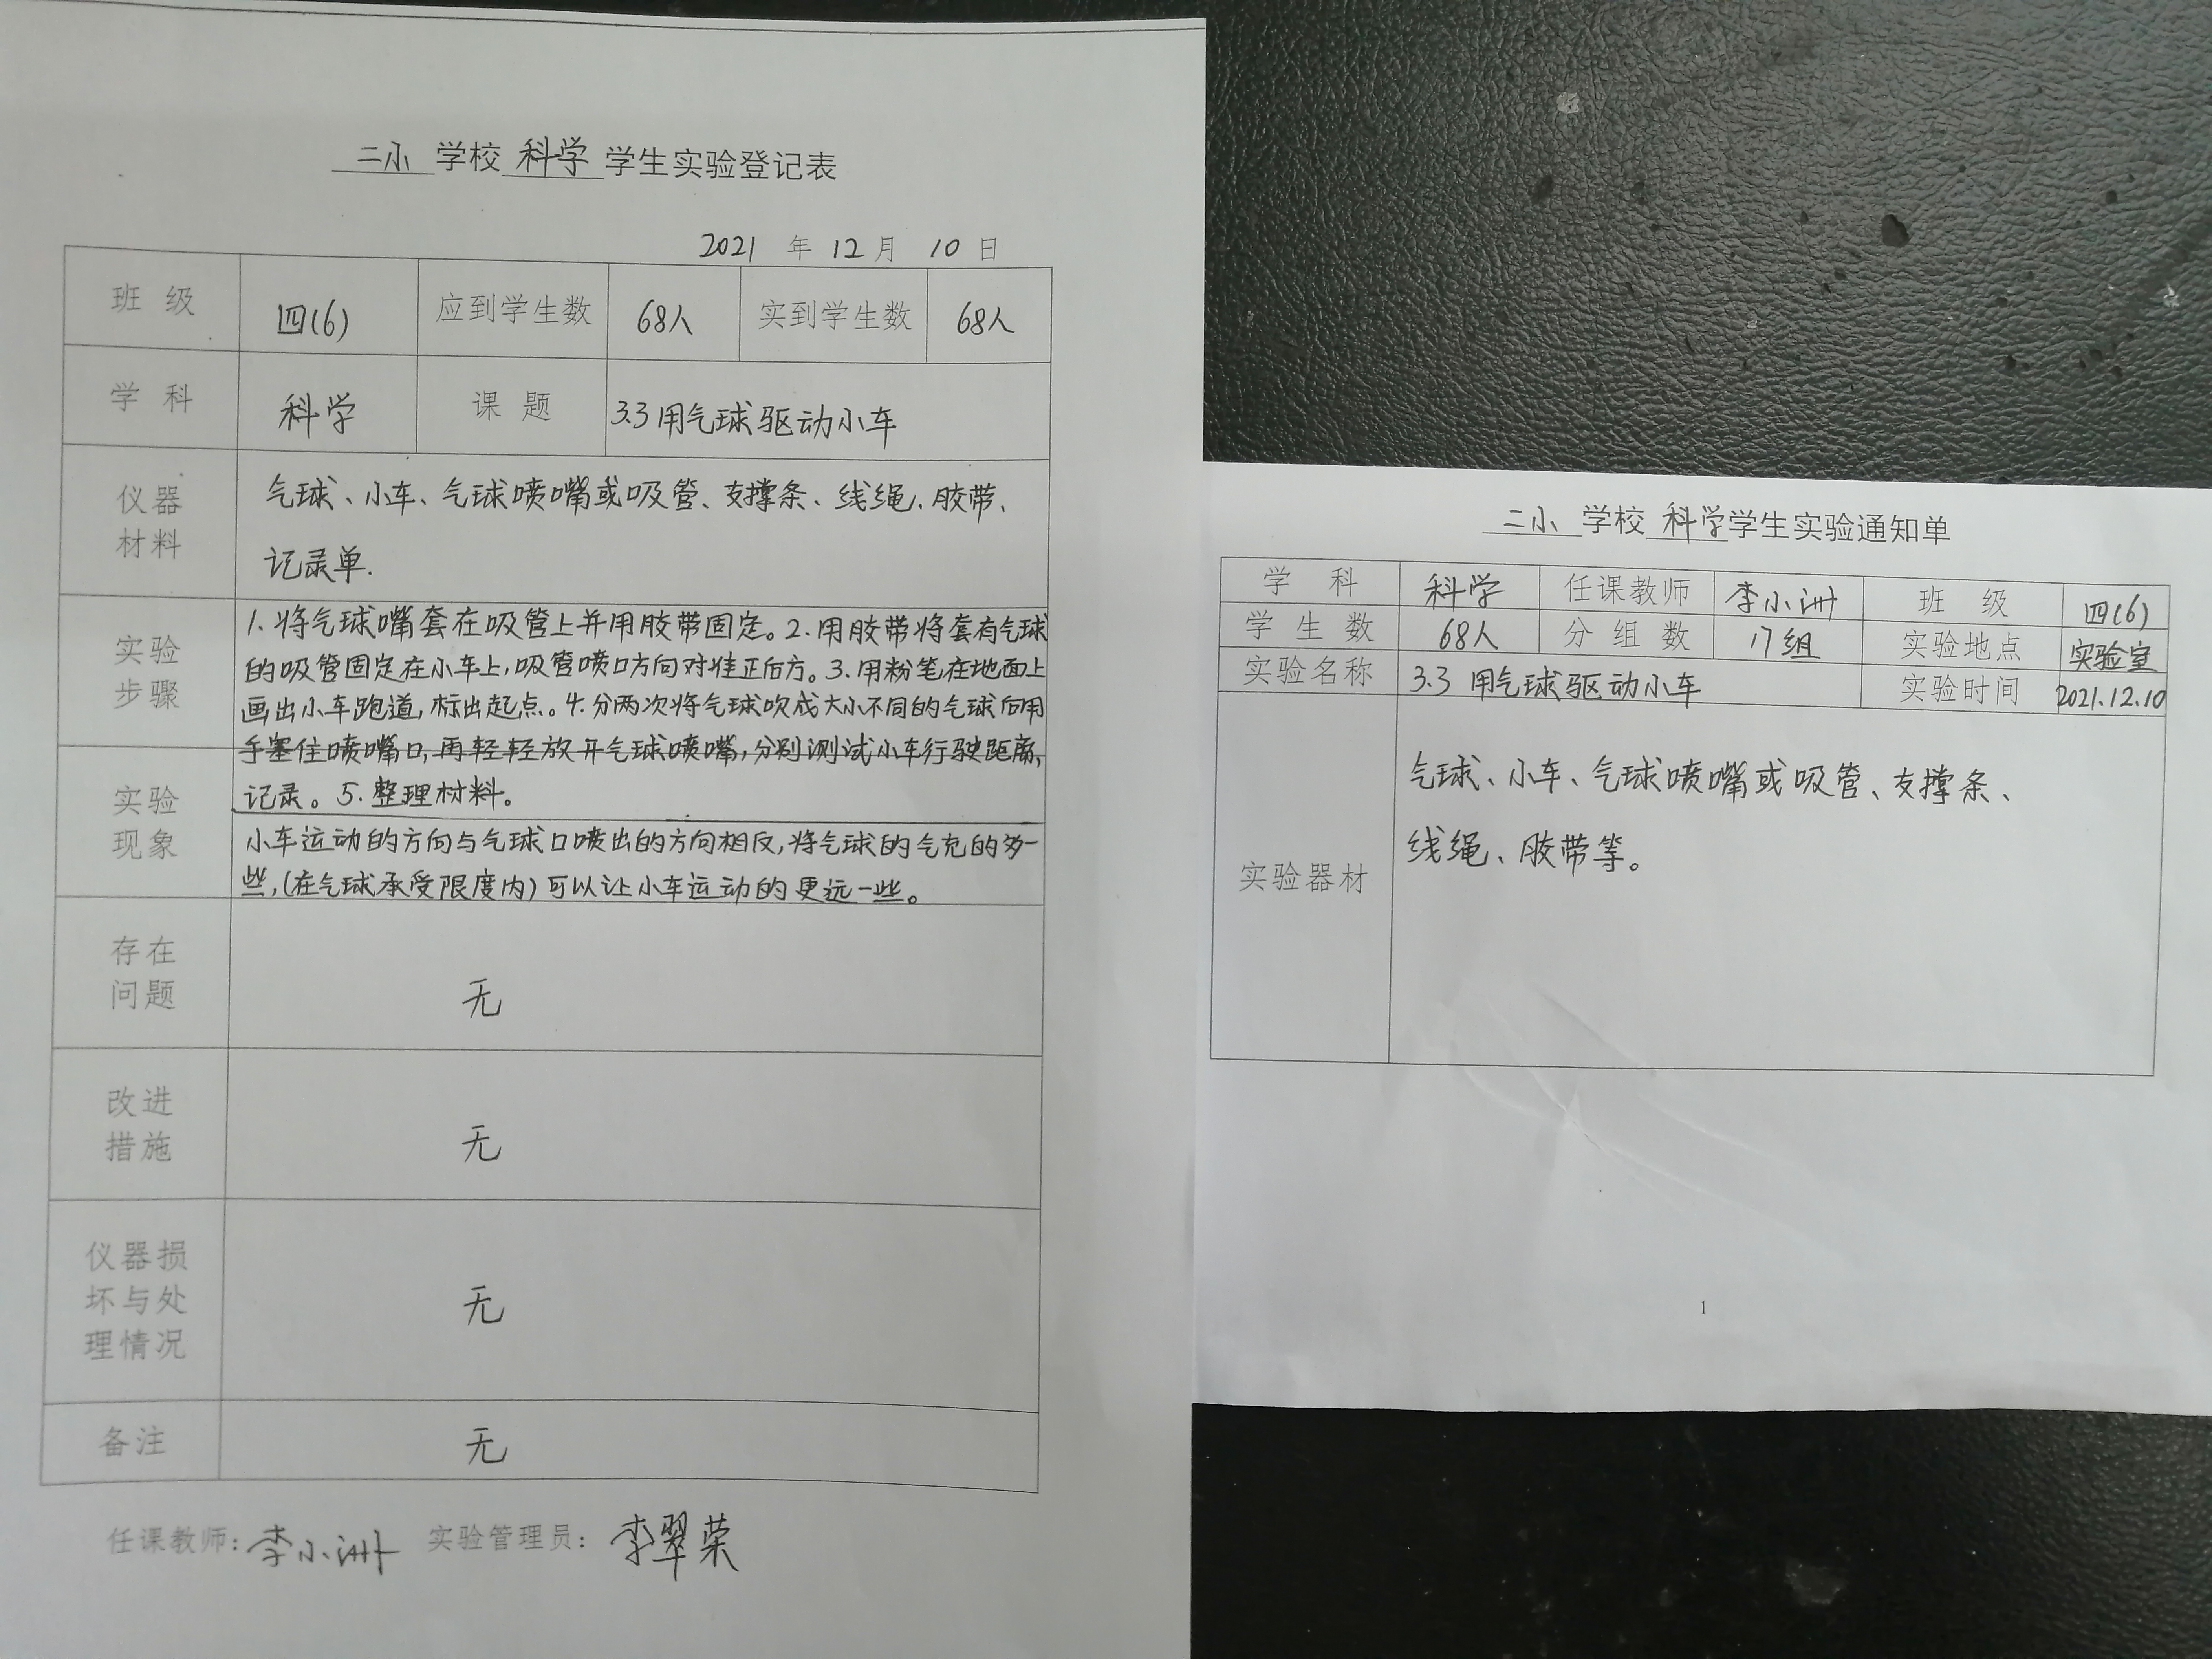 二小 学校 科学 学生实验登记表
2021 年 12 月 10 日
班 级 四(6) 应到学生数 68人 实到学生数 68人
学 科 科学 课 题 3.3用气球驱动小车
仪器
材料
气球、小车、气球喷嘴或吸管、支撑条、线绳、胶带、
记录单.
实验
步骤
1.将气球嘴套在吸管上并用胶带固定。2.用胶带将套有气球
的吸管固定在小车上,吸管喷口方向对准正后方。3.用粉笔在地面上
画出小车跑道,标出起点。4.分两次将气球吹成大小不同的气球后用
手塞住喷嘴口,再轻轻放开气球喷嘴,分别测试小车行驶距离,
记录。5.整理材料。
实验
现象
小车运动的方向与气球口喷出的方向相反,将气球的气充的多一
些,(在气球承受限度内)可以让小车运动的更远一些。
存在
问题
无
改进
措施
无
仪器损
坏与处
理情况
无
备注 无
任课教师:李小洲 实验管理员:李翠荣
二小 学校 科学学生实验通知单
学 科 科学 任课教师 李小洲 班 级 四(6)
学 生 数 68人 分 组 数 17组 实验地点 实验室
实验名称 3.3 用气球驱动小车 实验时间 2021.12.10
实验器材
气球、小车、气球喷嘴或吸管、支撑条、
线绳、胶带等。
1